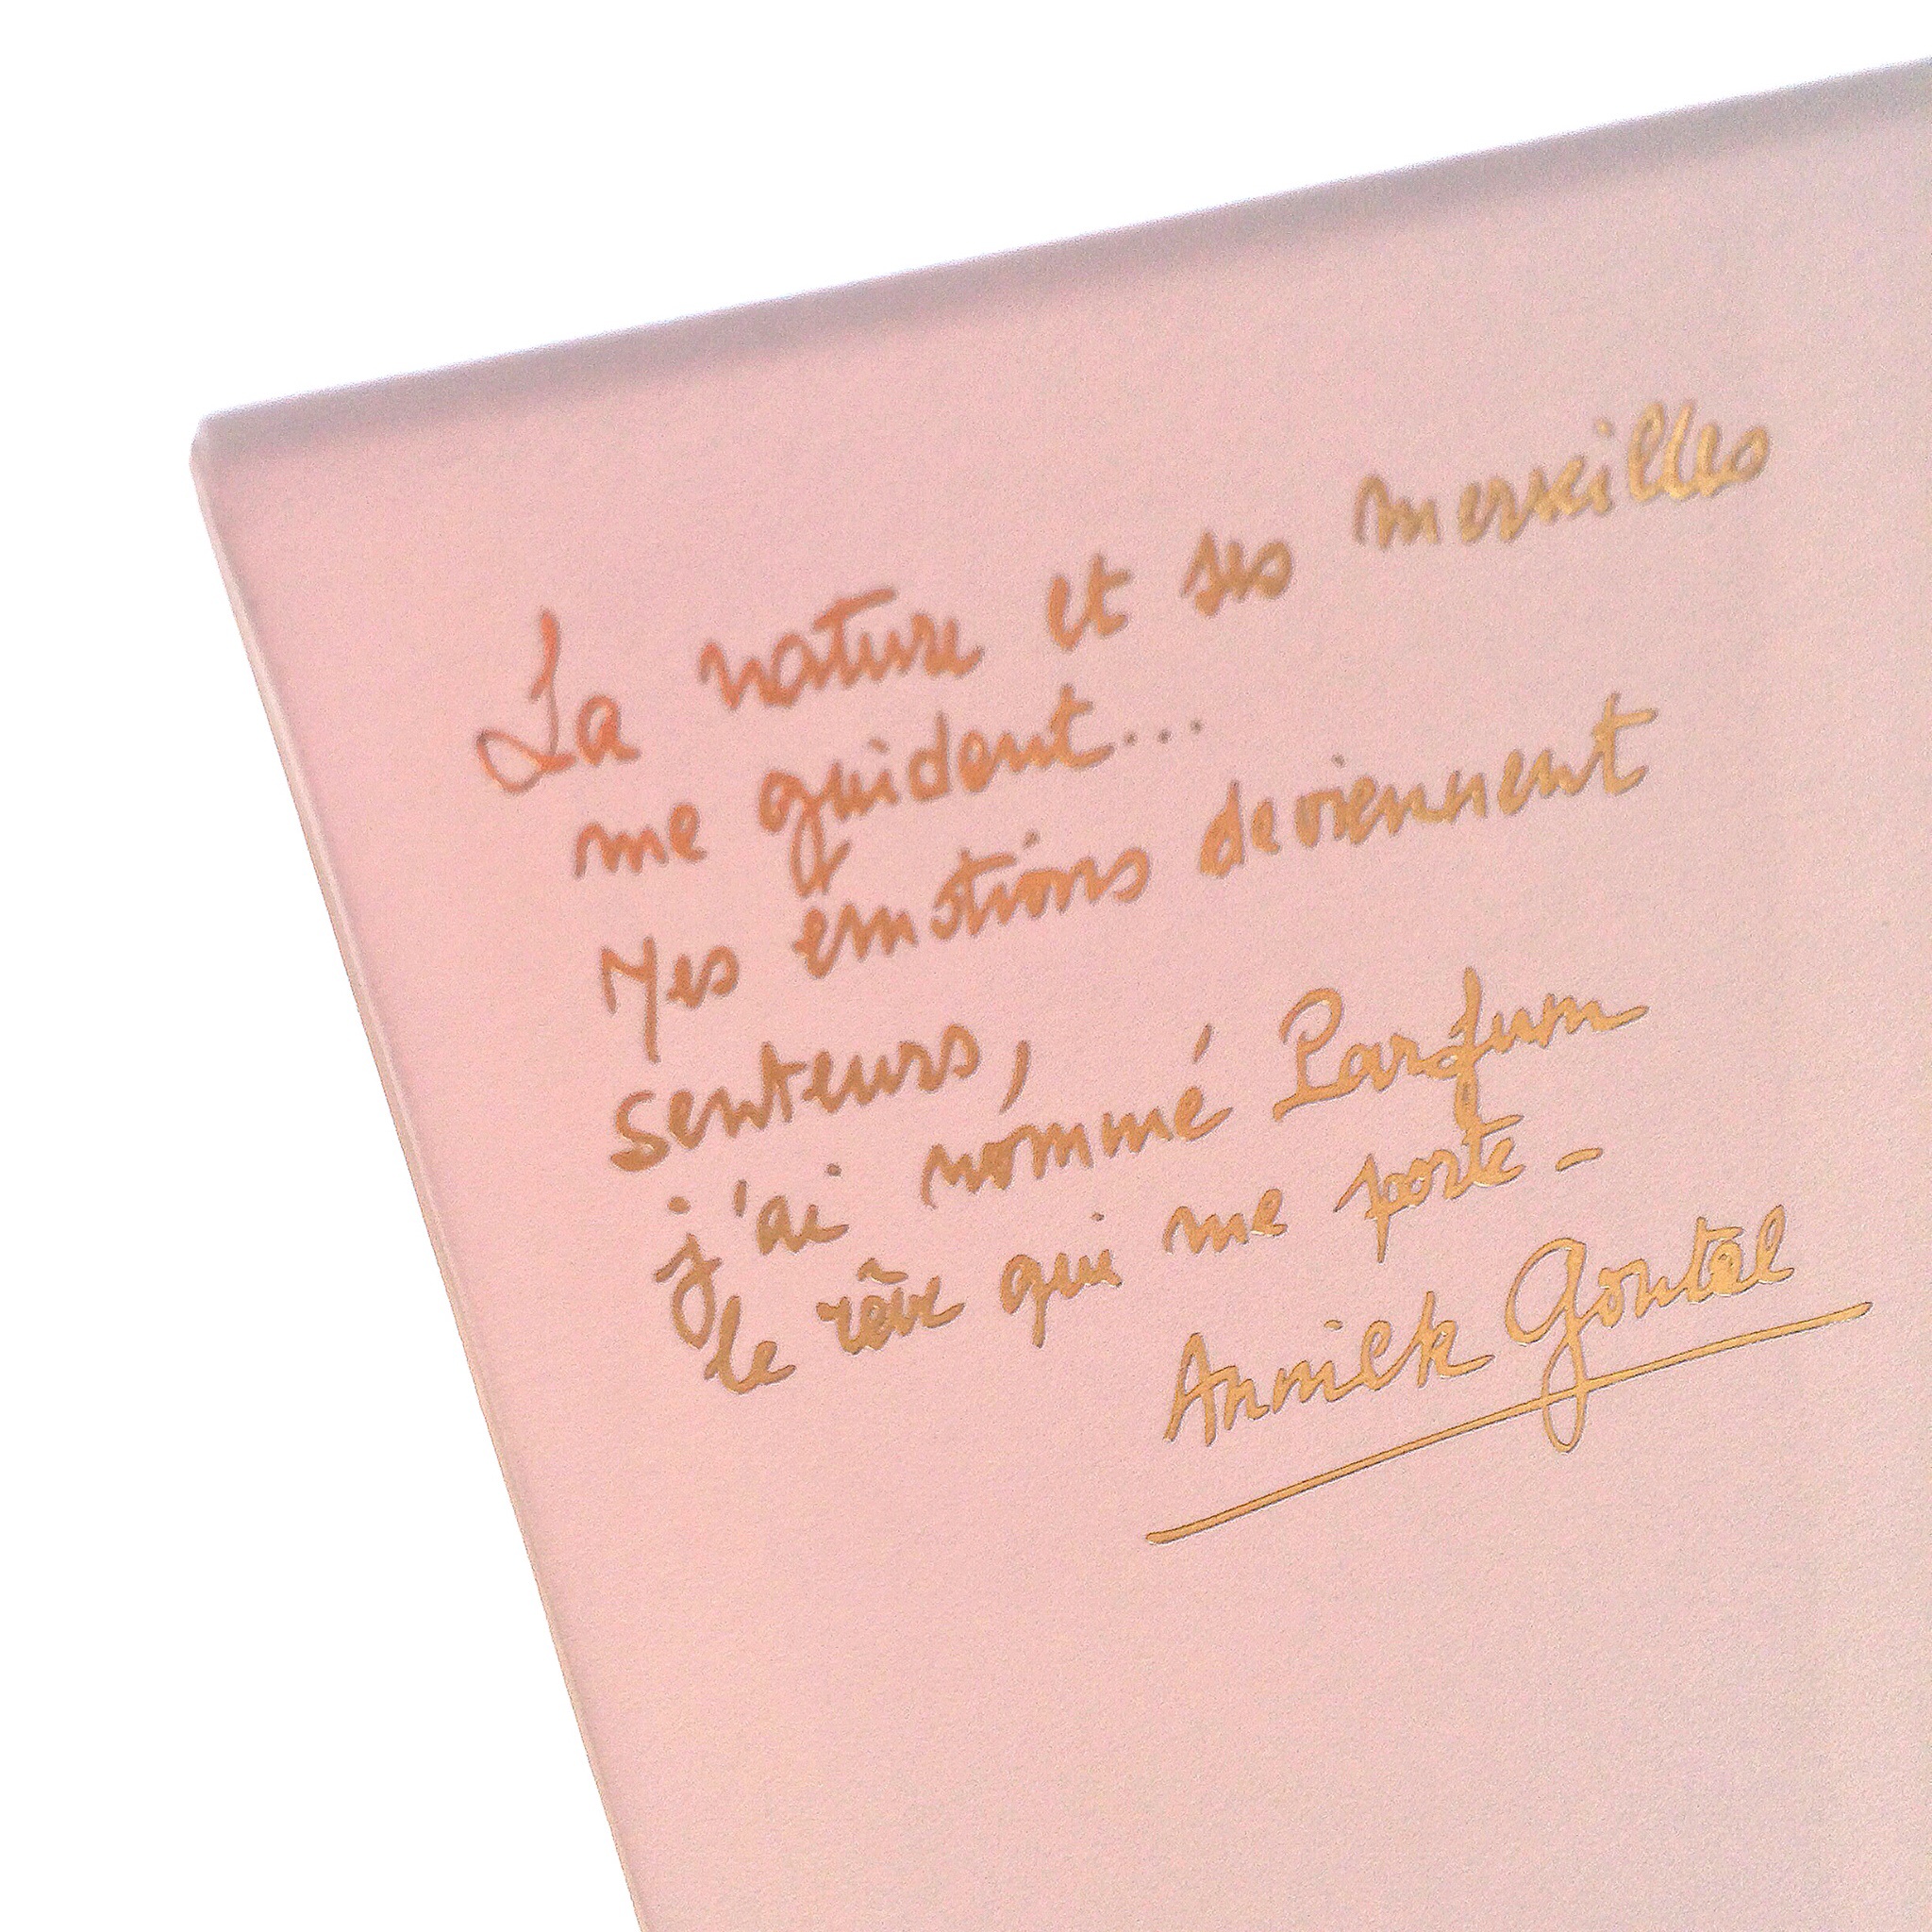 La nature et ses merveilles
me guident...
Mes émotions deviennent
senteurs,
j'ai nommé Parfum
le rêve qui me porte -
Annick Goutal